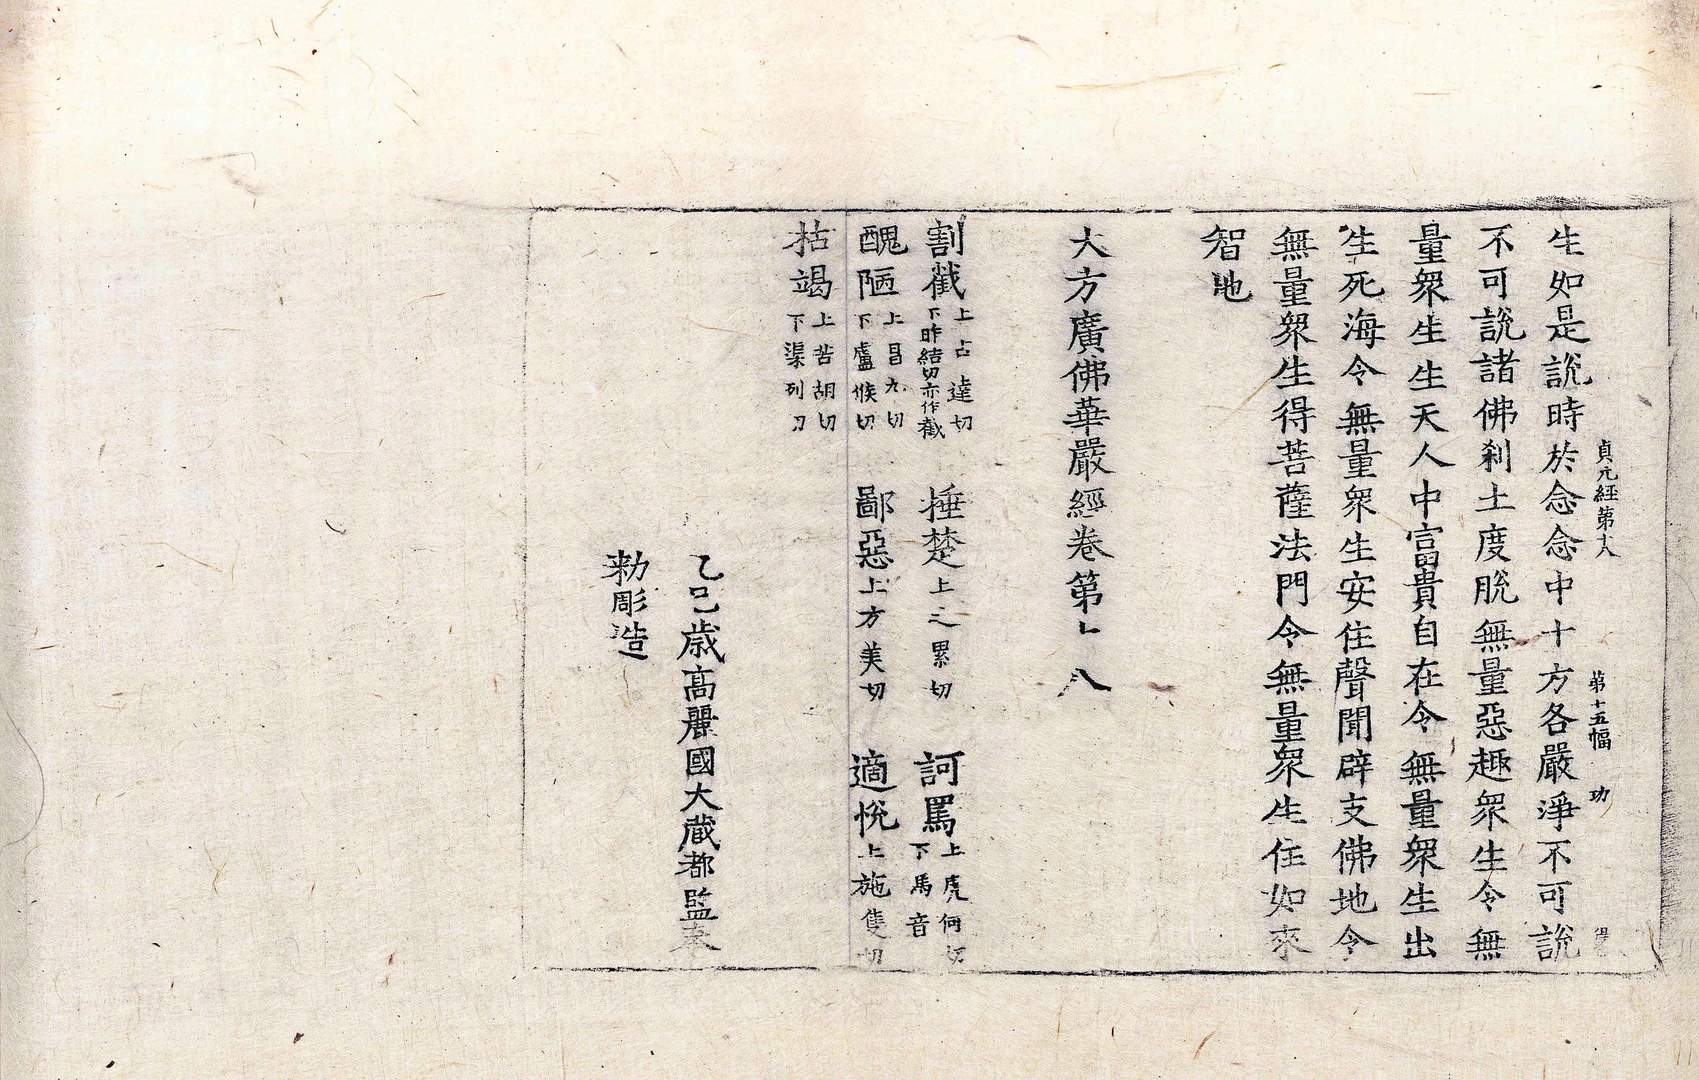 貞元經第十八 第十五幅 功
生如是說時於念念中十方各嚴淨不可說
不可說諸佛剎土度脫無量惡趣衆生令無
量衆生生天人中富貴自在令無量衆生出
生死海令無量衆生安住聲聞辟支佛地令
無量衆生得菩薩法門令無量衆生住如來
智地
大方廣佛華嚴經卷第十八
割截上占達切下昨結切亦作𢧵 捶楚上之累切 訶罵上虎何切下馬音
醜陋上昌九切下盧候切 鄙惡上方美切 適悅上施隻切
枯竭上苦胡切下渠列刀
乙巳歲高麗國大藏都監奉
勑彫造